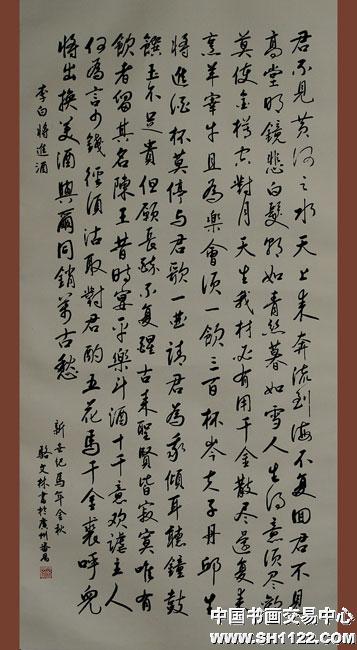 君不见黄河之水天上来奔流到海不复回君不见
高堂明镜悲白髮朝如青丝暮如雪人生得意须尽欢
莫使金樽空對月天生我材必有用千金散尽還复来
烹羊宰牛且為樂會须一飲三百杯岑夫子丹邱生
将進酒杯莫停与君歌一曲請君為我傾耳聽鐘鼓
饌玉不足貴但願長醉不复醒古来聖賢皆寂寞唯有
飲者留其名陳王昔時宴平樂斗酒十千恣欢謔主人
何為言少錢徑须沽取對君酌五花馬千金裘呼兒
将出換美酒與爾同銷萬古愁
李白将進酒
新世纪馬年金秋
駱文林書於廣州番禺
中国书画交易中心
www.SH1122.com